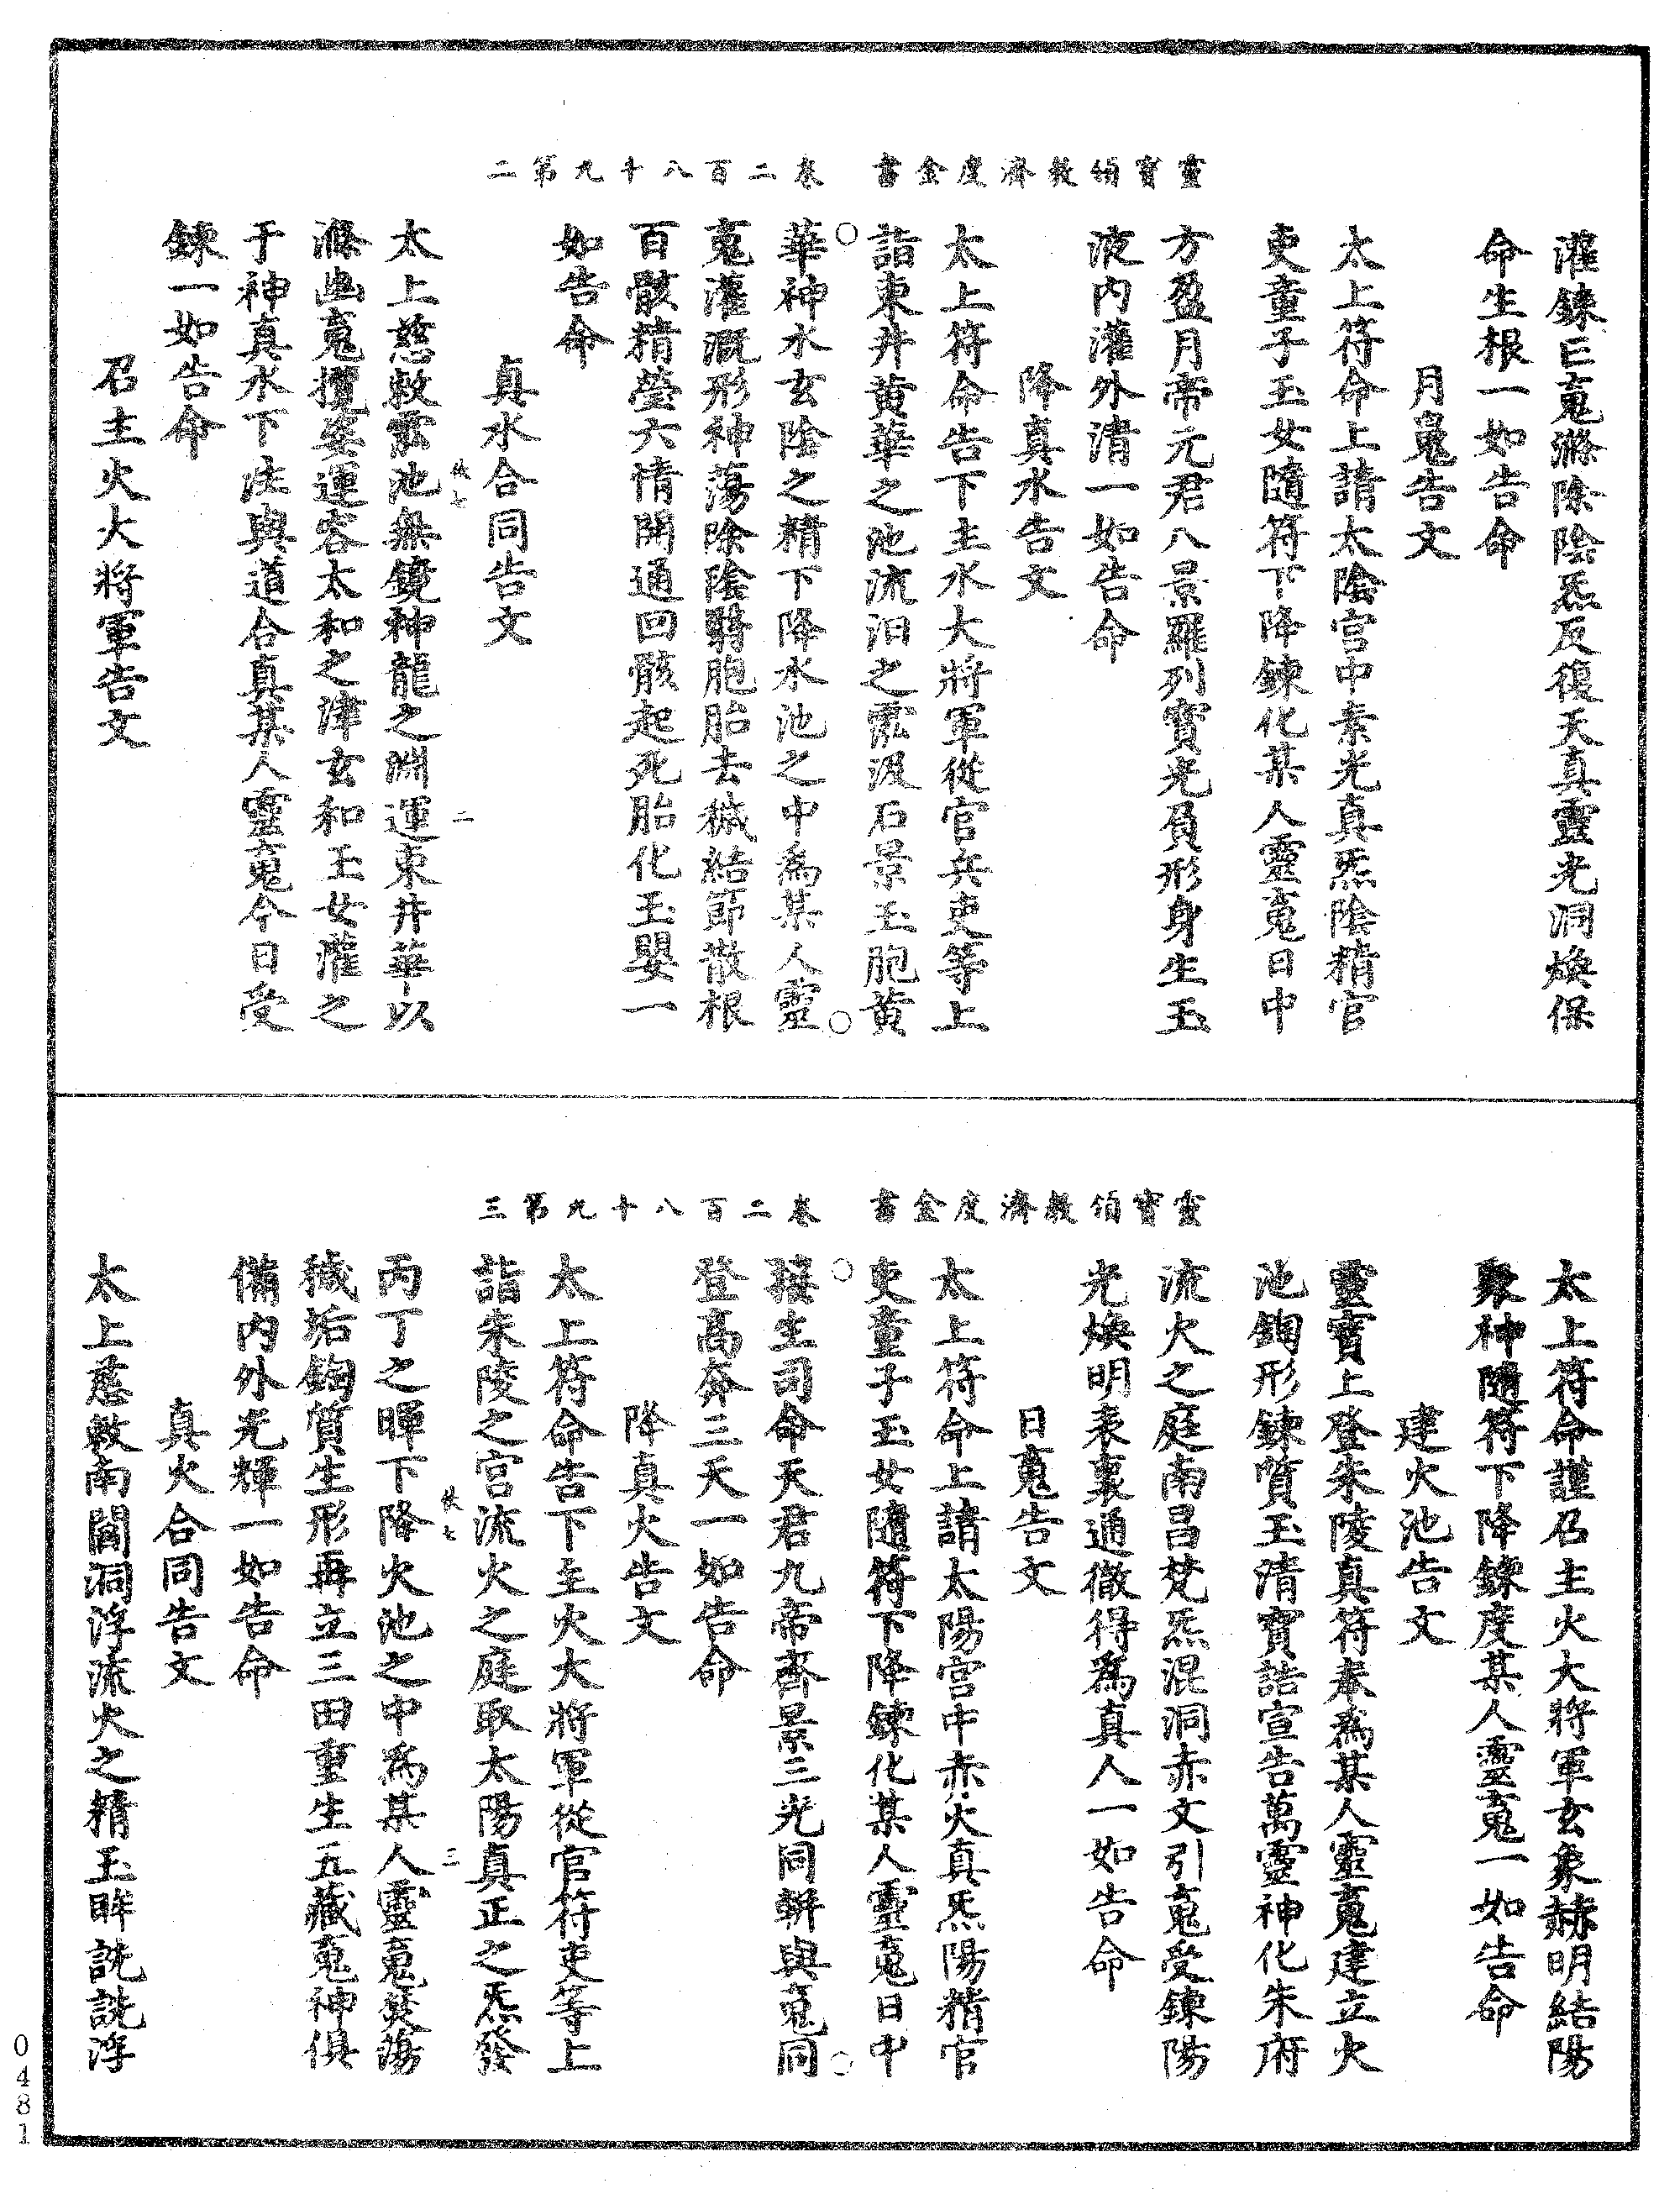 靈寶領教濟度金書　卷二百八十九第二
灌鍊亡䰟滌除陰炁反復天真靈光洞煥保
命生根一如告命
月䰟告文
太上符命上請太陰宮中素光真炁陰精官
吏童子玉女隨符下降鍊化某人靈䰟日中
方盈月帝元君八景羅列寶光負形身生玉
液內灌外清一如告命
降真水告文
太上符命告下主水大將軍從官兵吏等上
詣東井黃華之池流汨之霐汲石景玉胞黃
華神水玄陰之精下降水池之中為某人靈
䰟灌溉形神蕩除陰翳胞胎去穢結節散根
百骸精瑩六情開通回骸起死胎化玉嬰一
如告命
真水合同告文
太上慈敕霐池無鏡神龍之淵運東井華以
滌幽䰟攬姿運容太和之津玄和玉女灌之
于神真水下注與道合真某人靈䰟今日受
鍊一如告命
召主火大將軍告文
二
靈寶領教濟度金書　卷二百八十九第三
太上符命謹召主火大將軍玄象赫明結陽
聚神隨符下降鍊度某人靈䰟一如告命
建火池告文
靈寶上登朱陵真符奉為某人靈䰟建立火
池鉤形鍊質玉清寶誥宣告萬靈神化朱府
流火之庭南昌梵炁混洞赤文引䰟受鍊陽
光煥明表裏通徹得為真人一如告命
日䰟告文
太上符命上請太陽宮中赤火真炁陽精官
吏童子玉女隨符下降鍊化某人靈䰟日中
接生司命天君九帝齊景三光同軿與䰟同
登高奔三天一如告命
降真火告文
太上符命告下主火大將軍從官符吏等上
詣朱陵之宮流火之庭取太陽真正之炁發
丙丁之暉下降火池之中為某人靈䰟焚蕩
穢垢鉤質生形再立三田重生五藏䰟神俱
備內外光輝一如告命
真火合同告文
太上慈敕南閶洞浮流火之精玉眸詵詵浮
三
0481